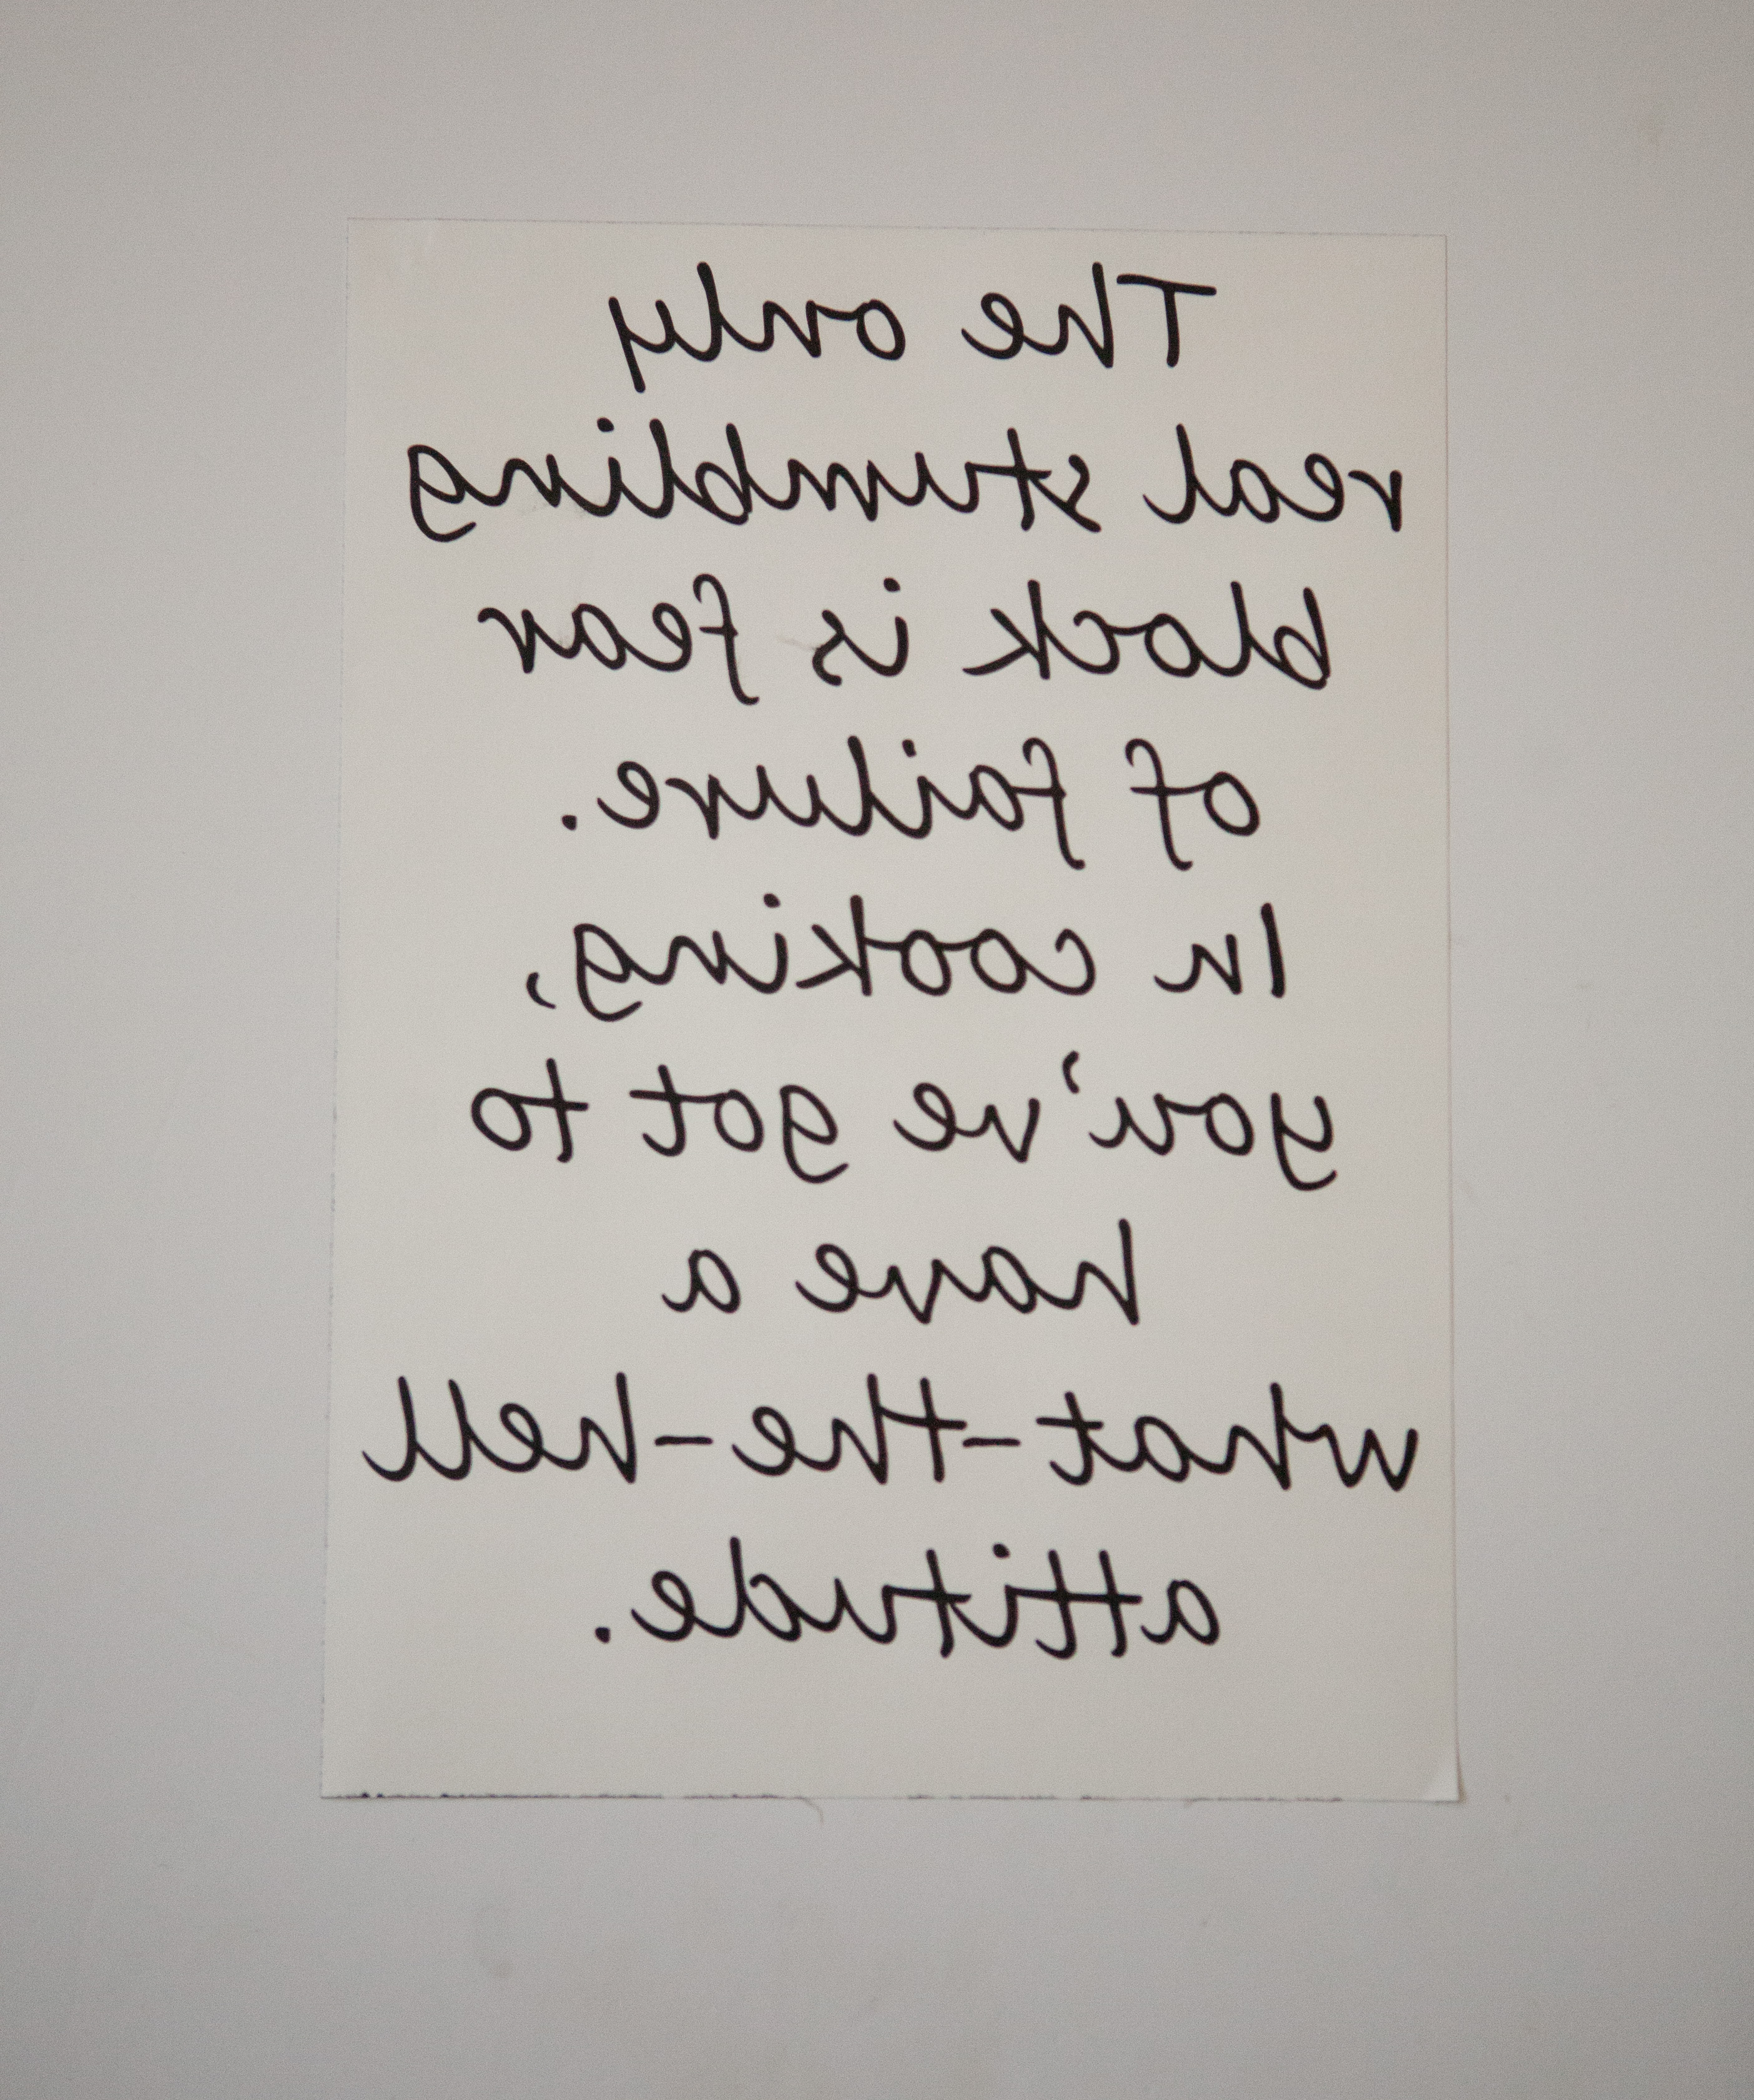 The only
real stumbling
block is fear
of failure.
In cooking,
you've got to
have a
what-the-hell
attitude.